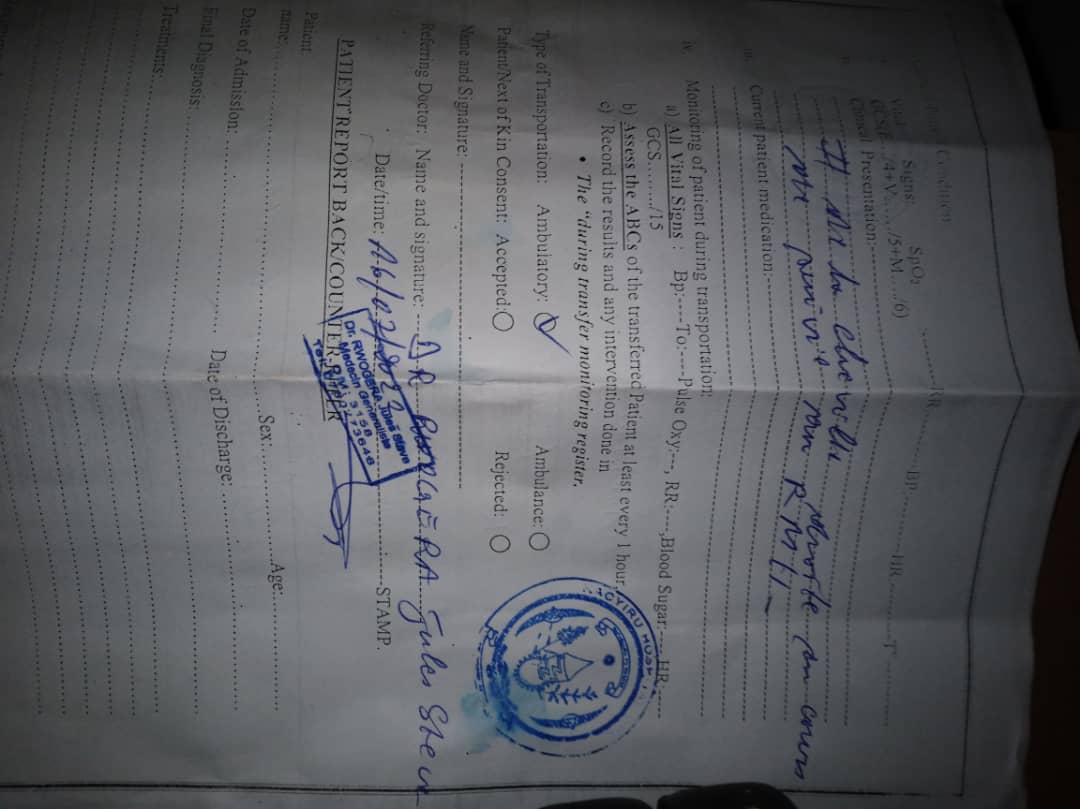 Condition
Vital Signs: SpO2 --------RR---------BP-----------HR---------T°-----------
GCS(E..../4+V....../5+M...../6)
Clinical Presentation:----------
# de la cheville droite en cours
de suivie au RMH
iii. Current patient medication:-----------
iv. Monitoring of patient during transportation:
a) All Vital Signs : Bp:----To:----Pulse Oxy:---, RR:----,Blood Sugar:---- HR:-----
GCS......../15
b) Assess the ABCs of the transferred Patient at least every 1 hour,
c) Record the results and any intervention done in
• The “during transfer monitoring register.
Type of Transportation: Ambulatory: ✓ Ambulance:
Patient/Next of Kin Consent: Accepted: Rejected:
Name and Signature: ---------------------------
Referring Doctor: Name and signature: --- DR RWOGERA Jules Steve
Date/time: 16/07/ -----STAMP.
Dr. RWOGERA Jules Steve
Medecin Generaliste
3158
Tel:
PATIENT REPORT BACK/COUNTER-REFER
Patient
name:.................................Sex:....................Age:....................
Date of Admission: ............................ Date of Discharge: ................................
Final Diagnosis: ................................
Treatments:................................